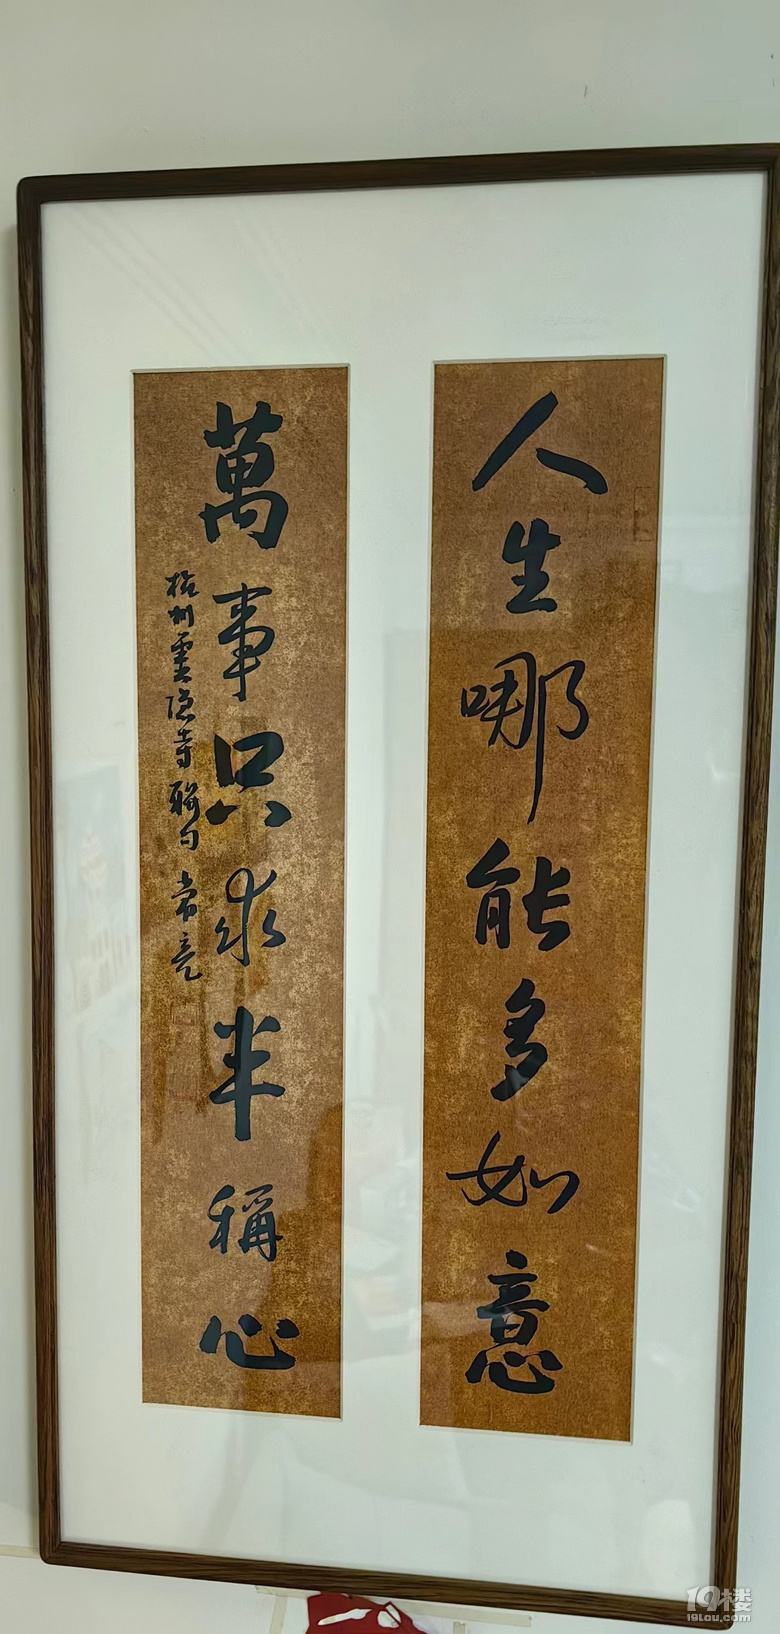 人生哪能多如意
萬事只求半稱心
杭州靈隐寺聯句 常亮
19楼
19lou.com